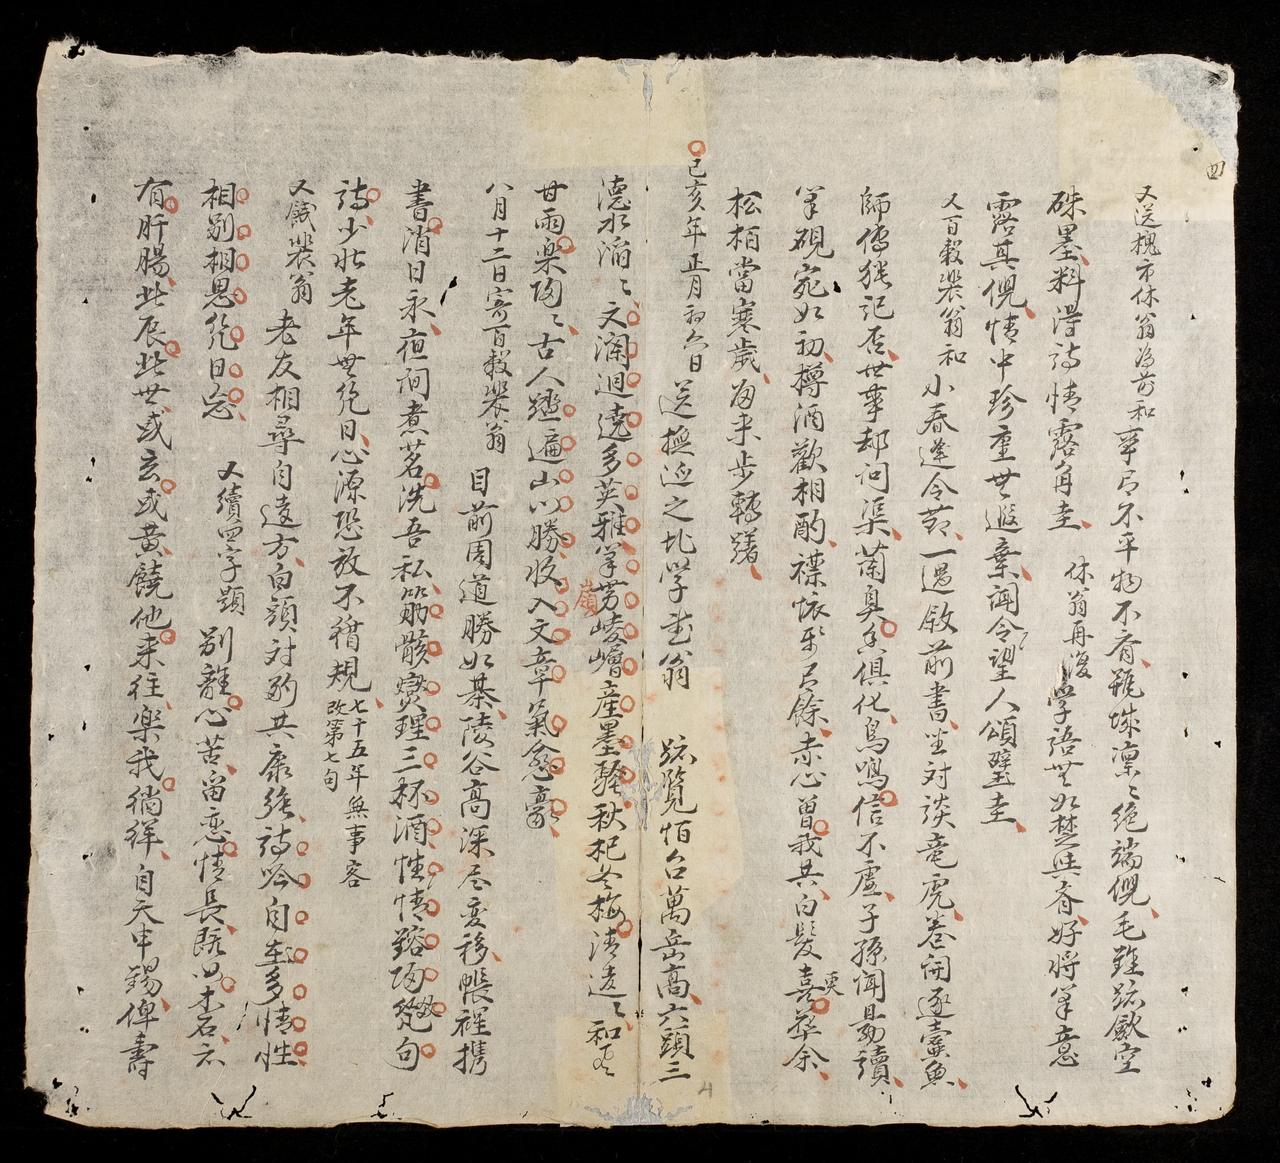 又送槐市休翁居前和 事有不平物不齊瓶城凜〻絶端倪毛錐踈歃空
硃墨料得詩情露角圭 休翁再復 學語世如楚與齊好將筆意
露其倪情中珍重無遐棄聞令望人頌璧圭
又百穀裴翁和 小春逢令節一週敘前書坐對談竜虎卷開逐蠹魚
師傅能記否世事却问渠蘭臭俱化鳥鳴信不虛子孫聞易讀
筆硯宛如初樽酒歡相酌襟懷有餘赤心曾我共白髮喜華余
松柏當寒歲來步轉躇
己亥年正月初六日 送撫返之北學老翁 跡覽恒台萬岳高六頭三
德水滔〻文瀾迴遶多英雅筆势崚嶒産墨豪秋杞冬梅清遠〻和風
甘雨楽陶〻古人遊遍山川勝收入文章氣愈豪
八月十二日寄百穀裴翁 目前周道勝如碁陵谷高深尽变移帳裡携
書消日永夜间煮茗洗吾私筋骸爕理三杯酒性情鎔陶幾句
詩少壮老年世幾日心源恐放不稽規 七十五年無事客
改第七句
又餞裴翁 老友相尋自遠方白頭对酌共康強詩吟自在多情性
相别相思幾日忘 又續四字題 别離心苦留恋情長既如木石亦
有肝腸此辰此世或玄或黄饒他来往楽我徜徉自天申錫俾壽